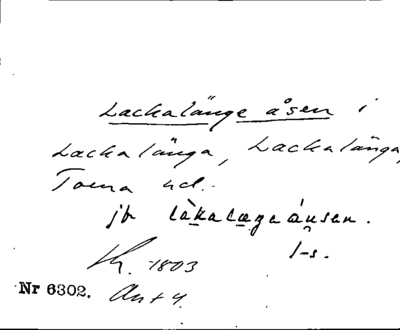 Lackalänge åsen i
Lackalänga, Lackalänga,
Torna hd.
jb làkalæ̀ge áusen.
1-s.
1803
Nr 6302. Ant 4.